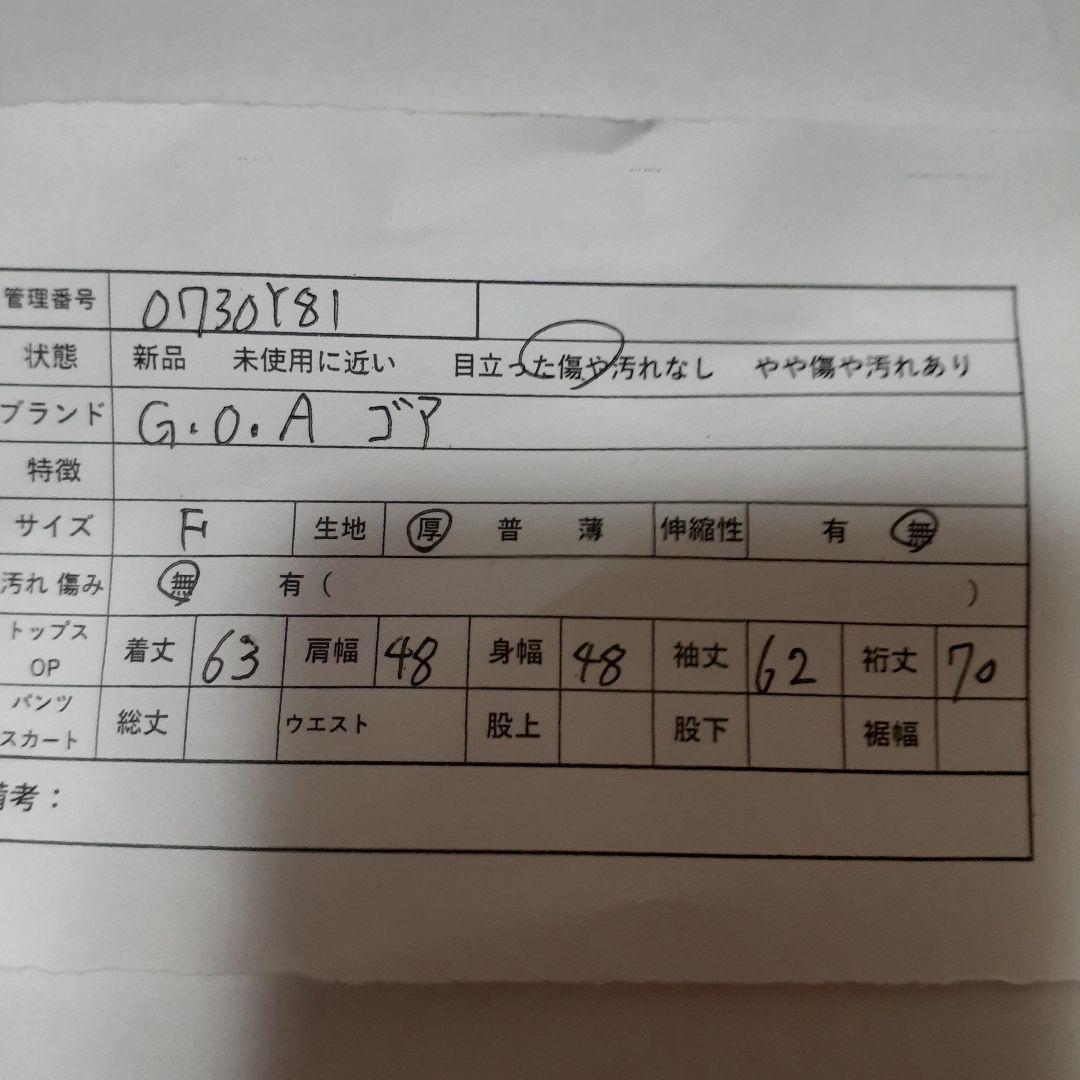 管理番号 0730Y81
状態 新品 未使用に近い 目立った傷や汚れなし やや傷や汚れあり
ブランド G.O.A ゴア
特徴
サイズ F 生地 厚 普 薄 伸縮性 有 無
汚れ 傷み 無 有 ( )
トップス OP 着丈 63 肩幅 48 身幅 48 袖丈 62 裄丈 70
パンツ スカート 総丈 ウエスト 股上 股下 裾幅
備考：